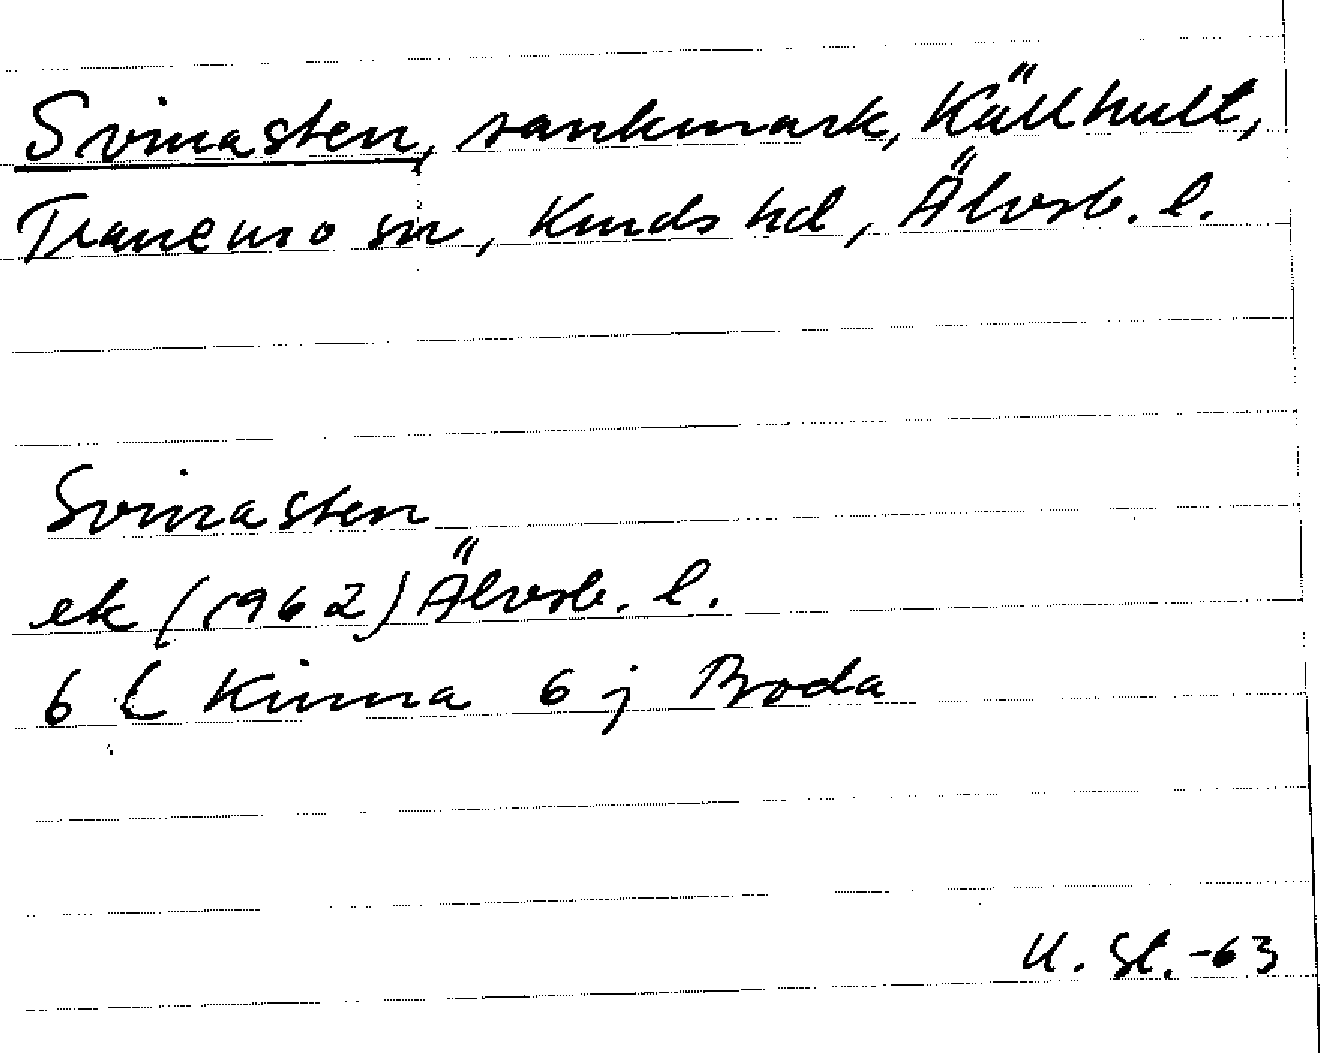 Svinasten, sankmark, Källhult,
Tranemo sn, Kinds hd, Älvsb. l.
Svinasten
ek (1962) Älvsb. l.
6 C Kinna 6 j Boda
U. St. -63